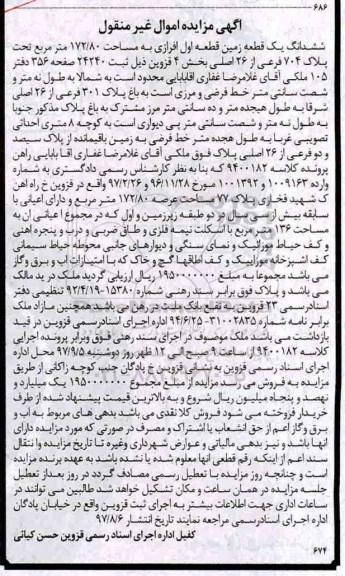 ۶۸۶
آگهی مزایده اموال غیر منقول
ششدانگ یک قطعه زمین قطعه اول افرازی به مساحت ۱۷۲/۸۰ متر مربع تحت
پلاک ۷۰۴ فرعی از ۲۶ اصلی بخش ۴ قزوین ذیل ثبت ۲۴۲۴۰ صفحه ۳۵۶ دفتر
۱۰۵ ملکی آقای غلامرضا غفاری آقابابایی محدود است به شمالا به طول نه متر و
شصت سانتی متر خط فرضی و مرزی است به باغ پلاک ۳۰۱ فرعی از ۲۶ اصلی
شرقا به طول هیجده متر و ده سانتی متر مرز مشترک به باغ پلاک مذکور جنوبا
به طول نه متر و شصت سانتی متر پی دیواری است به کوچه ۸ متری احداثی
تصویبی غربا به طول هجده متر خط فرضی به زمین باقیمانده از پلاک سیصد
و دو فرعی از ۲۶ اصلی پلاک فوق ملکی آقای غلامرضا غفاری آقابابایی راهن
پرونده کلاسه ۹۴۰۰۱۸۲ که بنا به نظر کارشناس رسمی دادگستری به شماره
وارده ۱۰۰۹۱۶۳ و ۱۰۰۱۳۹۲ مورخ ۹۶/۱۱/۲۸ و ۹۷/۲/۲۶ واقع در قزوین خ راه آهن
ک شهید فخاری پلاک ۷۷ مساحت عرصه ۱۷۲/۸۰ متر مربع و دارای اعیانی با
سابقه بیش از سی سال در دو طبقه زیرزمین و اول که در مجموع اعیانی آن به
مساحت ۱۳۶ متر مربع با اسکلت نیمه فلزی و طاق ضربی و درب و پنجره آهنی
و کف حیاط موزائیک و نمای سنگی و دیوارهای جانبی محوطه حیاط سیمانی
کف آشپزخانه موزاییک و کف اطاقها گچ و خاک که با امتیازات آب و برق و گاز
می باشد مجموعا به مبلغ ۱۹۵۰۰۰۰۰۰۰ ریال ارزیابی گردید ملک در ید مالک
می باشد و پلاک فوق برابر سند رهنی شماره ۱۵۳۸۰-۹۲/۴/۱۹ تنظیمی دفتر
اسنادرسمی ۲۳ قزوین به نفع بانک ملت در رهن می باشد همچنین مازاد ملک
برابر نامه شماره ۳۱۰۰۲۸۳۵-۹۴/۶/۲۵ اداره اجرای اسنادرسمی قزوین در قید
بازداشت می باشد ملک موصوف در اجرای سند رهنی فوق وبرابر پرونده اجرایی
کلاسه ۹۴۰۰۱۸۲ از ساعت ۹ صبح الی ۱۲ ظهر روز دوشنبه ۹۷/۹/۵ محل اداره
اجرای اسناد رسمی قزوین به نشانی قزوین خ پادگان جنب کوچه زاکانی از طریق
مزایده به فروش می رسد مزایده از مبلغ مجموع ۱۹۵۰۰۰۰۰۰۰ یک میلیارد و
نهصد و پنجاه میلیون ریال شروع و به بالاترین قیمت پیشنهاد شده از طرف
خریدار فروخته می شود فروش کلا نقدی می باشد بدهی های مربوط به آب و
برق و گاز اعم از حق انشعاب یا اشتراک و مصرف در صورتی که مورد مزایده دارای
آنها باشد و نیز بدهی مالیاتی و عوارض شهرداری وغیره تا تاریخ مزایده و انتقال
سند اعم از اینکه رقم قطعی آنها معلوم شده یا نشده باشد به عهده برنده مزایده
است و چنانچه روز مزایده با تعطیل رسمی مصادف گردد در روز بعداز تعطیل
جلسه مزایده در همان ساعت و مکان تشکیل خواهد شد طالبین می توانند در
ساعات اداری جهت اطلاعات بیشتر به اجرای ثبت قزوین واقع در خیابان پادگان
اداره اجرای اسنادرسمی مراجعه نمایند تاریخ انتشار ۹۷/۸/۶
کفیل اداره اجرای اسناد رسمی قزوین حسن کیانی
۶۷۴